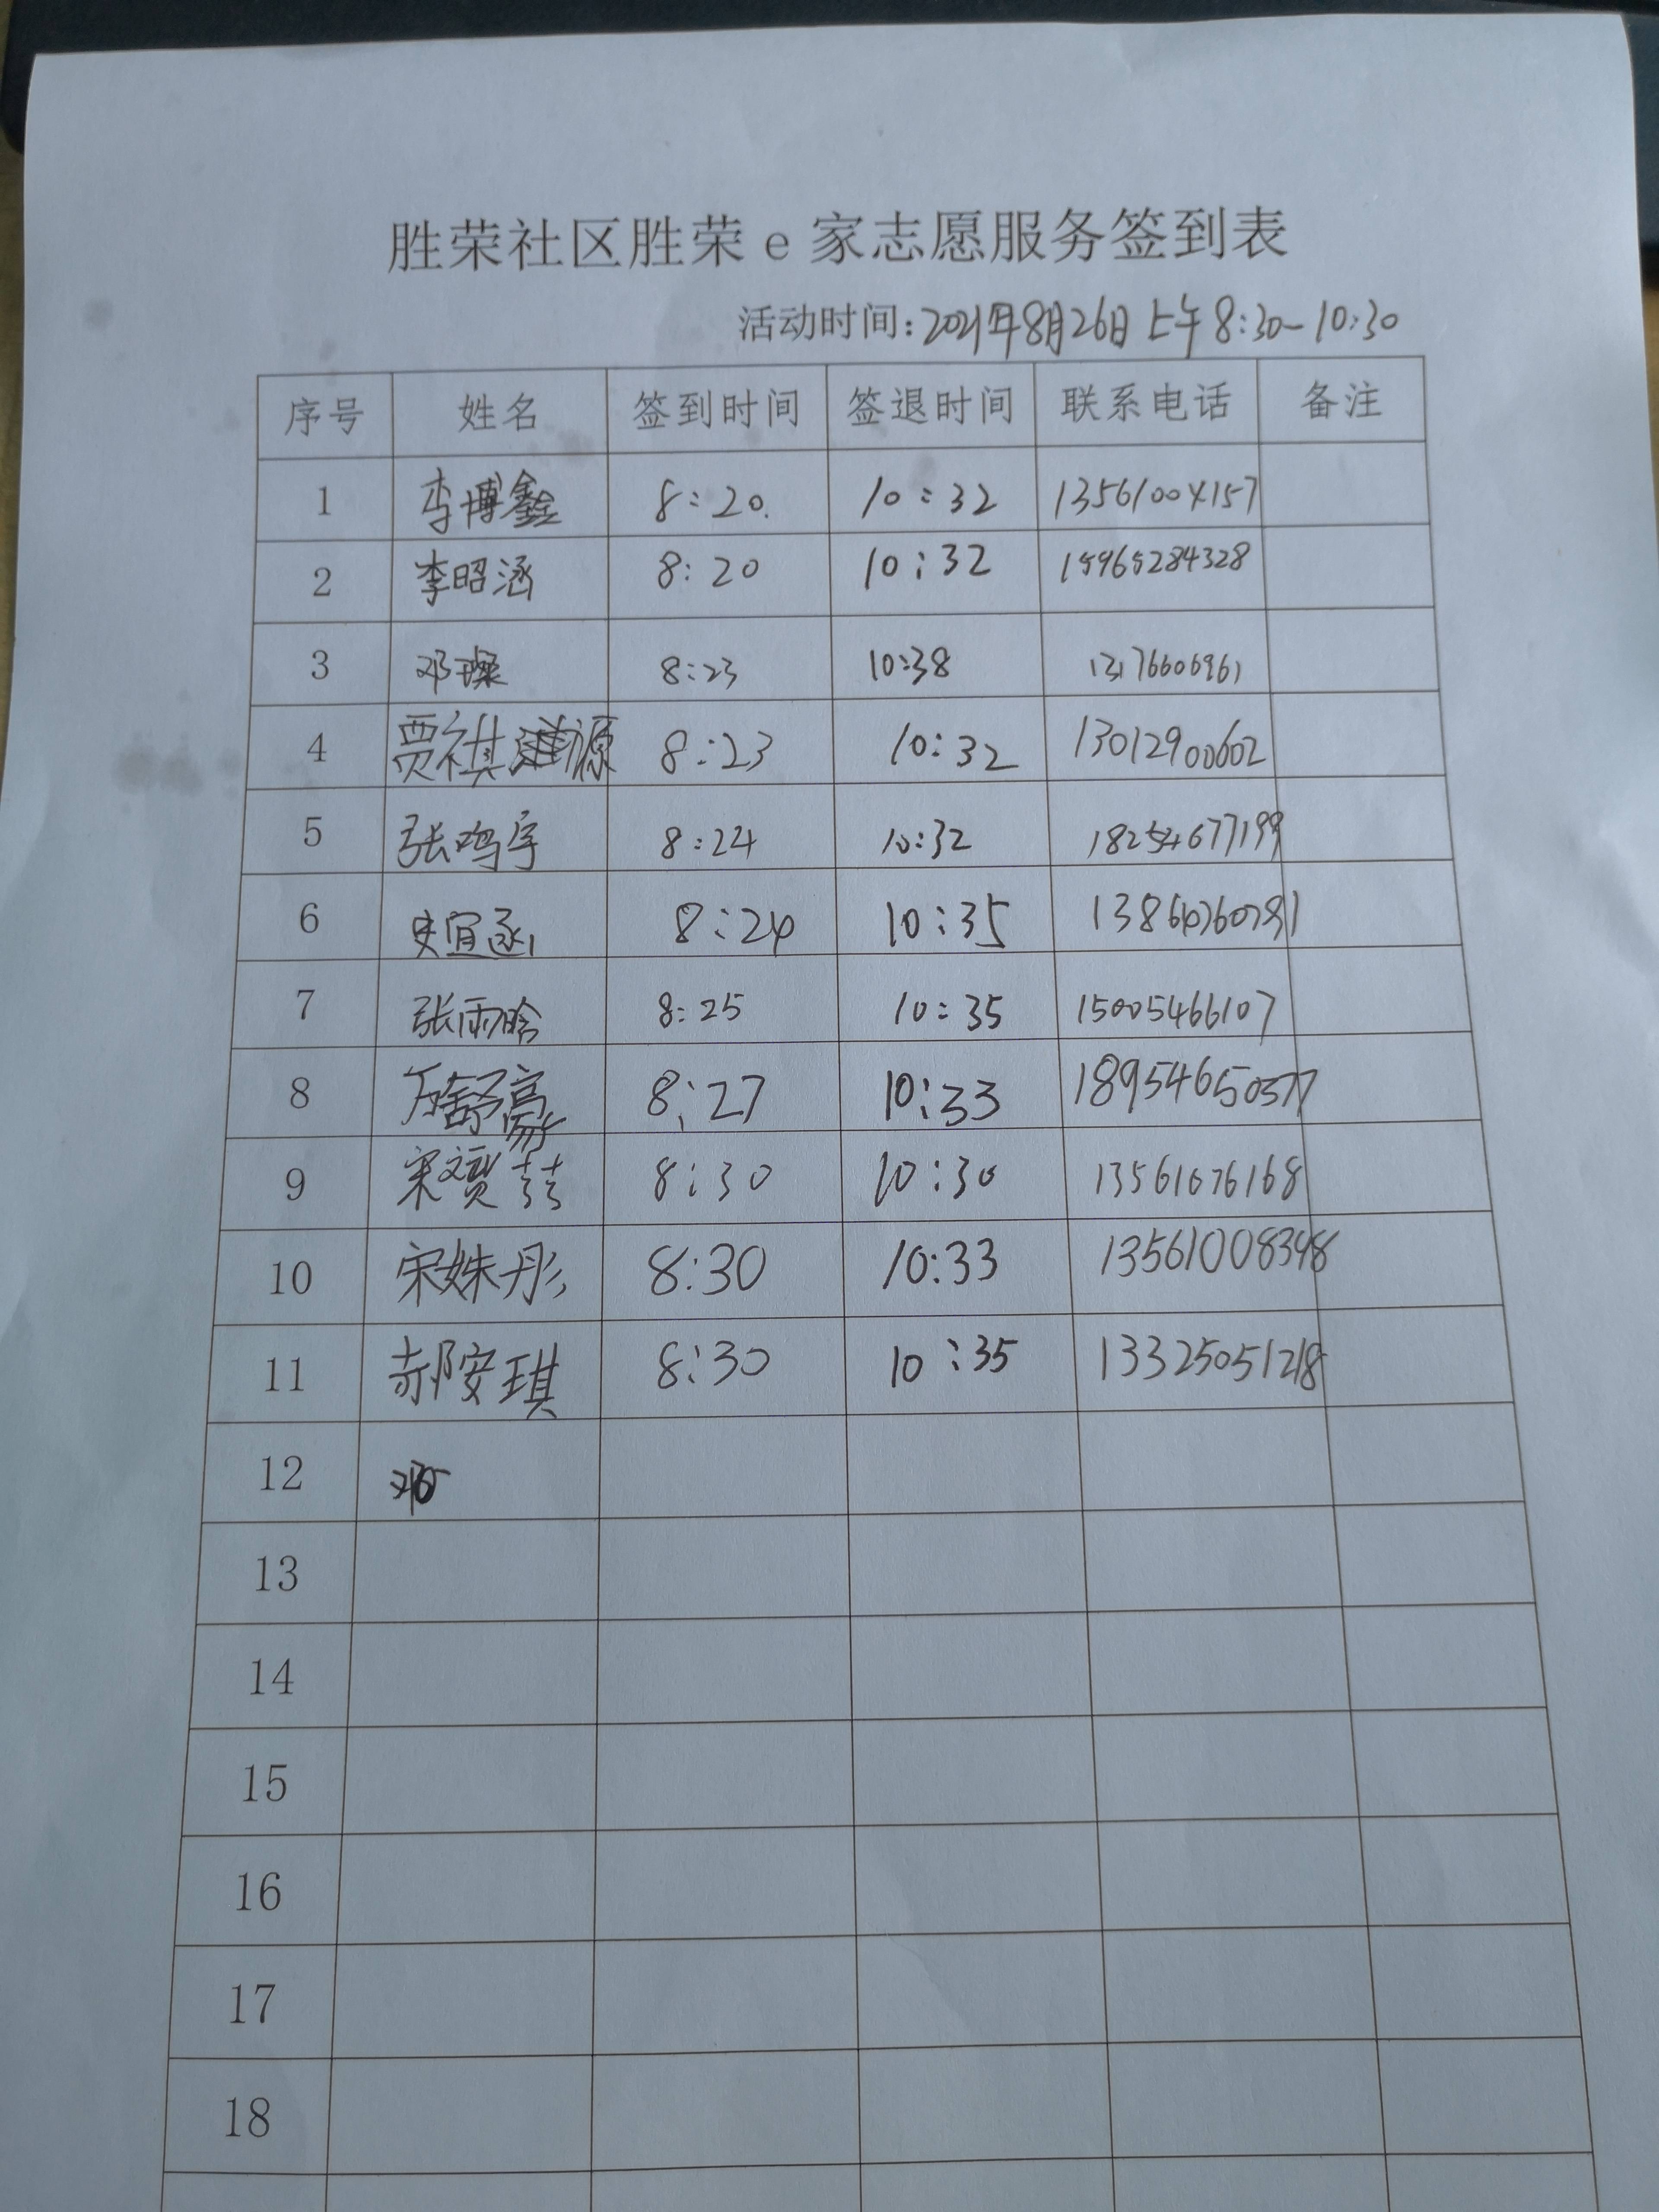 胜荣社区胜荣e家志愿服务签到表
活动时间:2021年8月26日上午8:30-10:30
序号 姓名 签到时间 签退时间 联系电话 备注
1 李博鑫 8:20. 10:32 13561004157
2 李昭涵 8:20 10:32 15965284328
3 邓璨 8:23 10:38 13176606961
4 贾祺源 8:23 10:32 13012900602
5 张鸣宇 8:24 10:32 18254677199
6 史宜函 8:24 10:35
7 张雨晗 8:25 10:35 15005466107
8 万舒豪 8:27 10:33 18954650577
9 宋赟喆 8:30 10:30 13561676168
10 宋姝彤 8:30 10:33 13561008398
11 郝安琪 8:30 10:35 13325051218
12
13
14
15
16
17
18